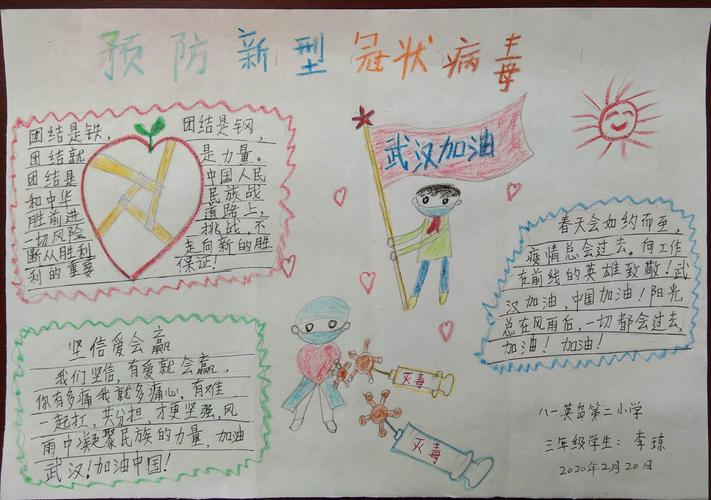 预防新型冠状病毒
团结是铁,
团结就
团结是
和中华
胜前进
一切风险
断从胜利
利的重要
团结是钢,
是力量。
中国人民
民族战
道路上,
挑战,不
走向新的胜
保证!
武汉加油
春天会如约而至,
疫情总会过去。向工作
在前线的英雄致敬!武
汉加油,中国加油!阳光
总在风雨后,一切都会过去,
加油!加油!
坚信爱会赢
我们坚信,有爱就会赢,
你有多痛我就多痛心,有难
一起扛,共分担才更坚强,风
雨中凝聚民族的力量,加油
武汉!加油中国!
灭毒
灭毒
八一英岛第二小学
三年级学生:李琼
2020年2月20日